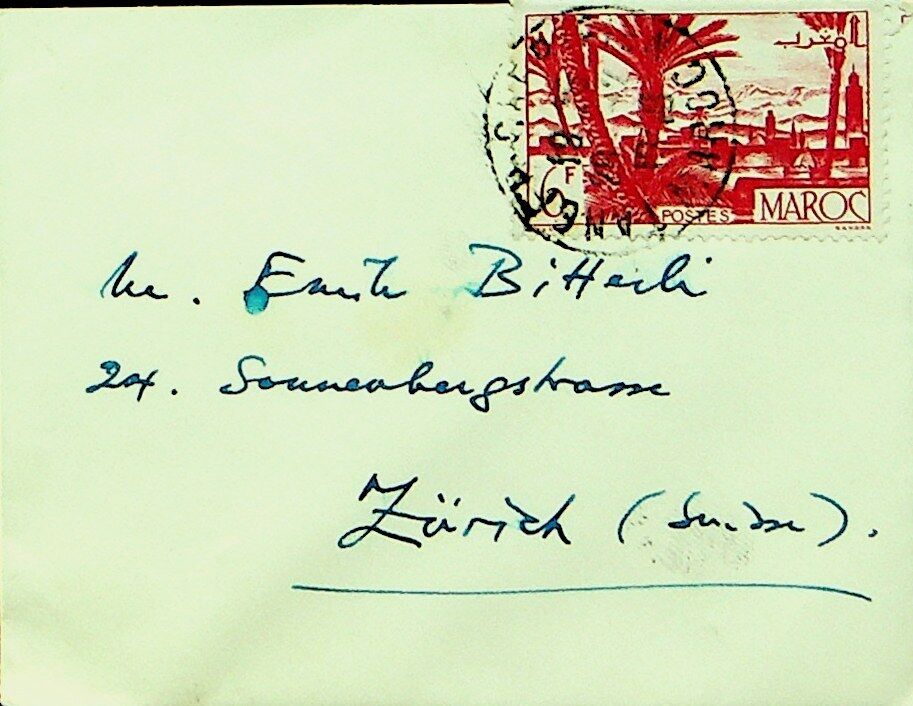 المغرب
6F
POSTES MAROC
M. Emile Bitterli
24. Sonnenbergstrasse
Zürich (Suisse).